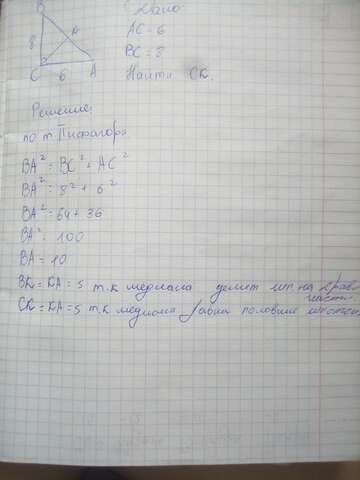 B
Дано
AC = 6
8
K
BC = 8
C 6 A
Найти CK.
Решение:
по т. Пифагора
BA² = BC² + AC²
BA² = 8² + 6²
BA² = 64 + 36
BA² = 100
BA = 10
BK = KA = 5 т.к медиана делит гип на 2 рав
части.
CK = KA = 5 т.к медиана равна половине